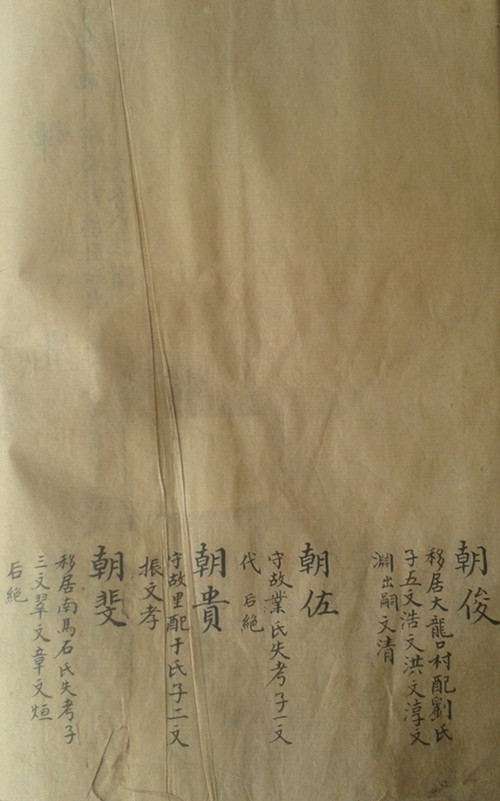 朝俊
移居大龍口村配劉氏
子五文浩文洪文淳文
淵出嗣文清
朝佐
守故業氏失考子一文
代 后絶
朝貴
守故里配于氏子二文
振文孝
朝斐
移居南馬石氏失考子
三文翠文章文烜
后絶